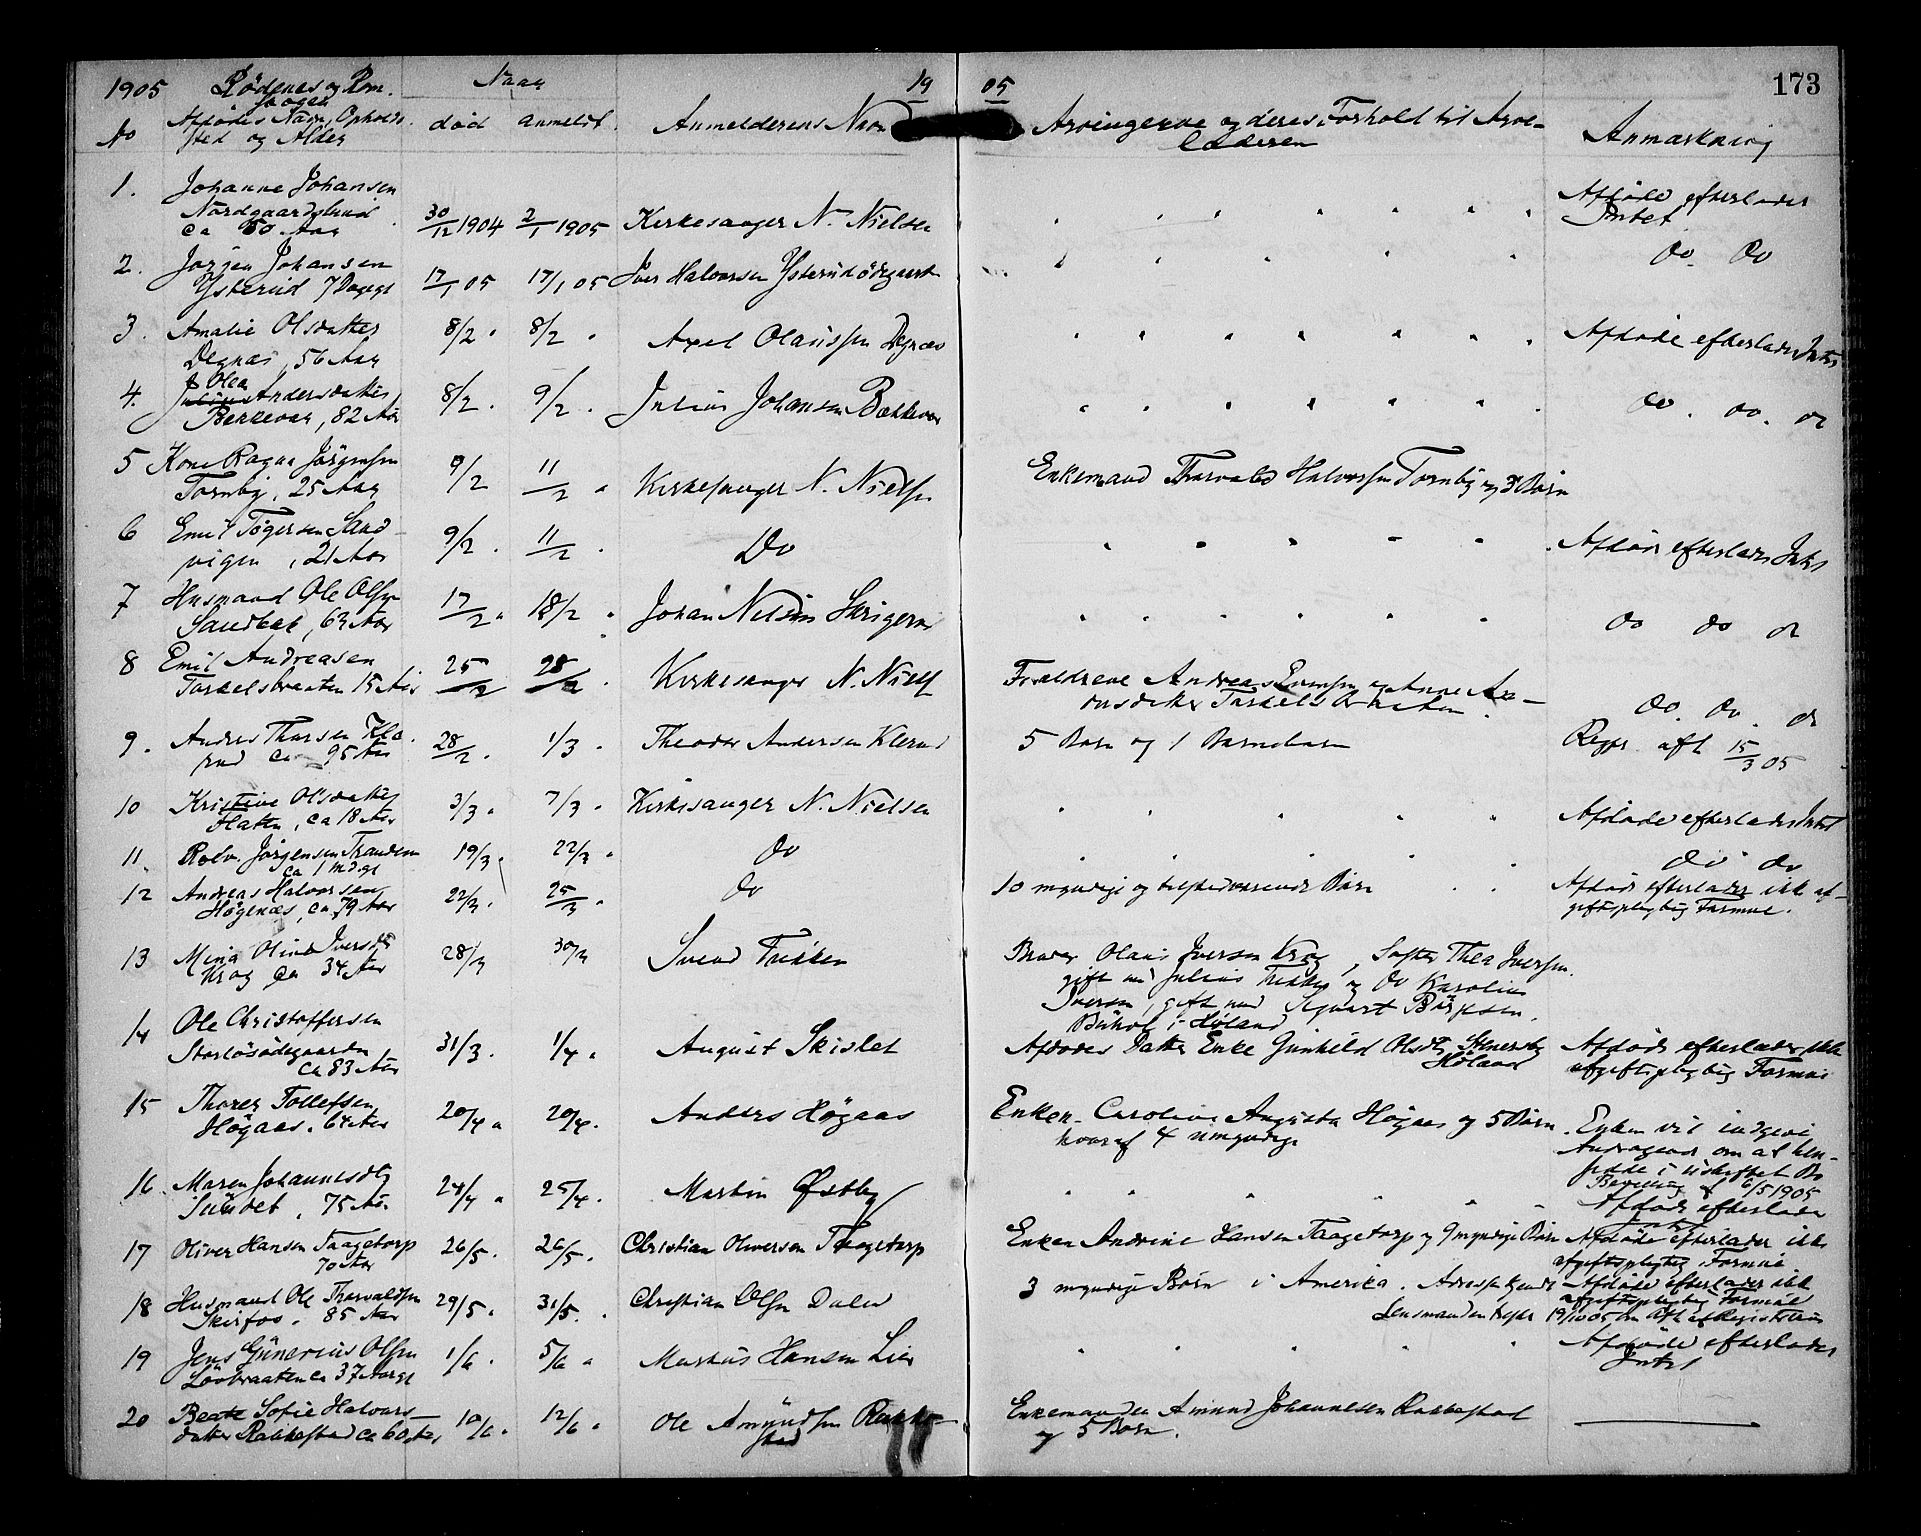 1905 Rödenes og Rom-
sogn
Naar
19 05
173
No
Afdödes Navn, Opholds-
sted og Alder
död anmeldt.
Anmelderens Navn
Arvingerne og deres Forhold til Arve-
laderen
Anmærkning
1. Johanne Johansen
Nordgaardslund
ca 80 Aar
30/12 1904 2/1 1905 Kirkesanger N. Nielsen
Afdöde efterlader
Intet
2. Jörgen Johansen
Ysterud 7 Dage
17/1 05 17/1 05 Iver Halvorsen Ysterudödegaard
do. do
3. Amalie Olsdatter
Degnæs, 56 Aar
8/2 " 8/2 " Axel Olaussen Degnæs
Afdöde efterlader Intet
4. Olea
Andersdatter
Bekkevar, 82 Aar
8/2 . 9/2 . Julius Johansen Bækkevar
do. do. do
5 Kone Ragna Jörgensen
Tornby, 25 Aar
9/2 11/2 " Kirkesanger N. Nielsen
Enkemand Thorvald Halvorsen Tornby og 3 Börn
6 Emil Tögersen Sand-
vigen, 21 Aar
9/2 . 11/2 . Do
Afdöde efterlader Intet
7 Husmand Ole Olsen
Sandbæk, 63 Aar
17/2 " 18/2 " Johan Nilsen
do do do
8 Emil Andreasen
Torkelsbraaten 15 Aar
25/2 28/2 . Kirkesanger N. Niels
Forældrene Andreas Evensen og Anne Aa-
onsdatter Torkelsbraaten.
do. do. do
9. Andres Thorsen Kle-
rud ca 95 Aar
28/2 . 1/3 . Theodor Andersen Klerud
5 Börn og 1 Barnebarn
Regis. afh 15/3 05
10 Kristine Olsdatter
Flaten, ca 18 Aar
3/3 " 7/3 " Kirkesanger N. Nielsen
Afdöde efterlader Intet
11. Rolv. Jörgensen Trandem
ca 1 Md. gl
19/3 . 22/3 " do
do do
12 Andreas Halvorsen
Högenæs, ca 79 Aar
22/3 . 25/3 . do
10 myndige og tilstedeværende Börn
Afdöde efterlader ikk af-
giftspligtig Formue.
13 Mina Oline Iversdt
Krog ca 34 Aar
28/3 30/3 Svend Fukken
Broder Olaus Iversen Krog, Söster Thea Iversen.
gift m Julius og do Karoline
Iversen, gift med Sigvart
i Höland
14 Ole Christoffersen
Storlösödegaarden
ca 83 Aar
31/3 . 1/4 " August Skislet
Afdödes Datter Enke Gunhild Olsdtr
Höland
Afdöde efterlader ikke
afgiftspligtig Formue
15 Thorer Tollefsen
Högaas. 64 Aar
20/4 " 20/4 . Anders Högaas
Enken Caroline Augusta Högaas og 5 Börn
hvoraf 4 umyndige
Enken vil indgive
Andragende om at hen-
sidde i uskiftet Bo
Bevilling af 6/5 1905
16. Maren Johannesdtr
Sundet, 75 Aar
24/4 " 25/4 . Martin Østby
Afdöde efterlader
Intet
17 Oliver Hansen Taagetorp
70 Aar
26/5 . 26/5 . Christian Oliversen Taagetorp
Enken Andrine Hansen Taagetorp og 9 myndige Börn
Afdöde efterlader ikke
afgiftspligtig Formue
18 Husmand Ole Thorvaldsen
Skirfos. 85 Aar
29/5 . 31/5 . Christian Olsen Daler
3 myndige Börn i Amerika. Adresse kjendt
Afdöde efterlader ikk
afgiftspligtig Formue
Lensmanden 19/10 05 om Afh af Registrering
19 Jens Gunerius Olsen
Lövbraaten ca 37 Aar gl
1/6 . 5/6 " Markus Hansen Lier
Afdöde efterlader
Intet
20 Beate Sofie Halvors-
datter Rakkestad ca 60 Aar
10/6 . 12/6 " Ole Amundsen Rakke-
stad
Enkemanden Amund Johannesen Rakkestad
og 5 Börn.